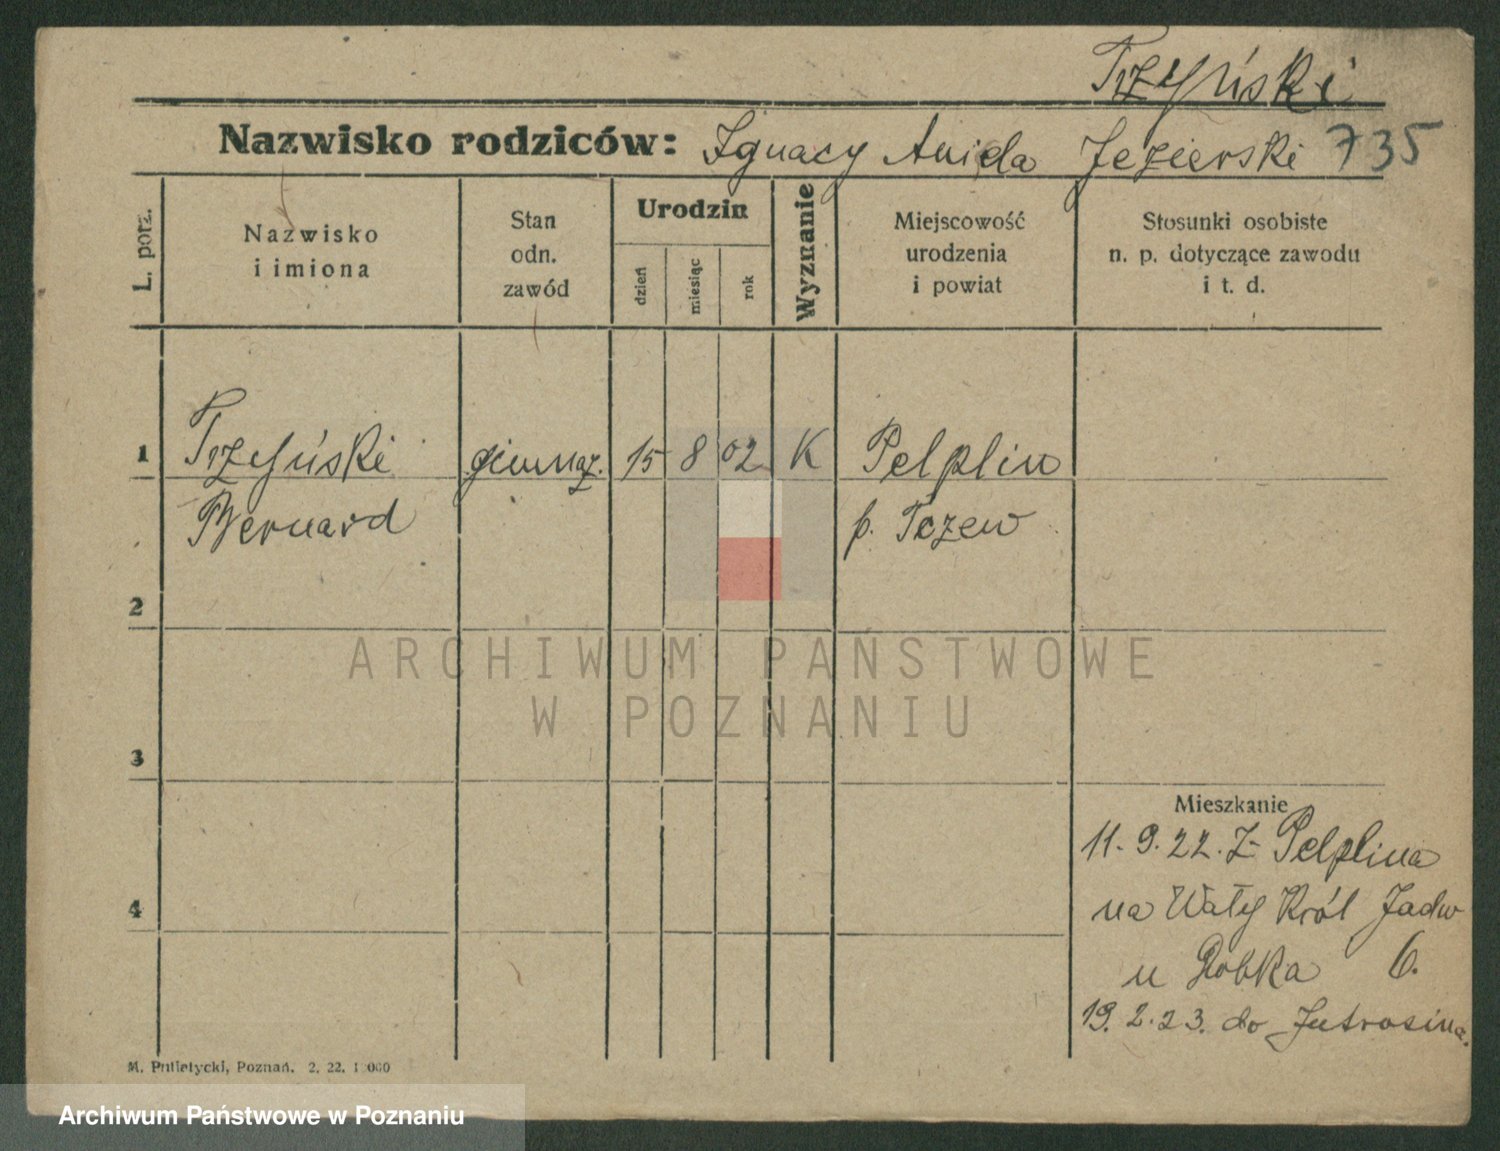 Trzyński
Nazwisko rodziców: Ignacy Anida Jezierski 735
L. porz.
Nazwisko
i imiona
Stan
odn.
zawód
Urodzin
dzień
miesiąc
rok
Wyznanie
Miejscowość
urodzenia
i powiat
Stosunki osobiste
n. p. dotyczące zawodu
i t. d.
1 Trzyński gimnaz. 15 8 02 K Pelplin
Bernard p. Tczew
2
ARCHIWUM PAŃSTWOWE
W POZNANIU
3
Mieszkanie
11. 9. 22. Z Pelplina
4
na Wały Król Jadw
u Robka 6.
19. 2. 23. do Jutrosina.
M. Putiatycki, Poznań. 2. 22. 1 000
Archiwum Państwowe w Poznaniu